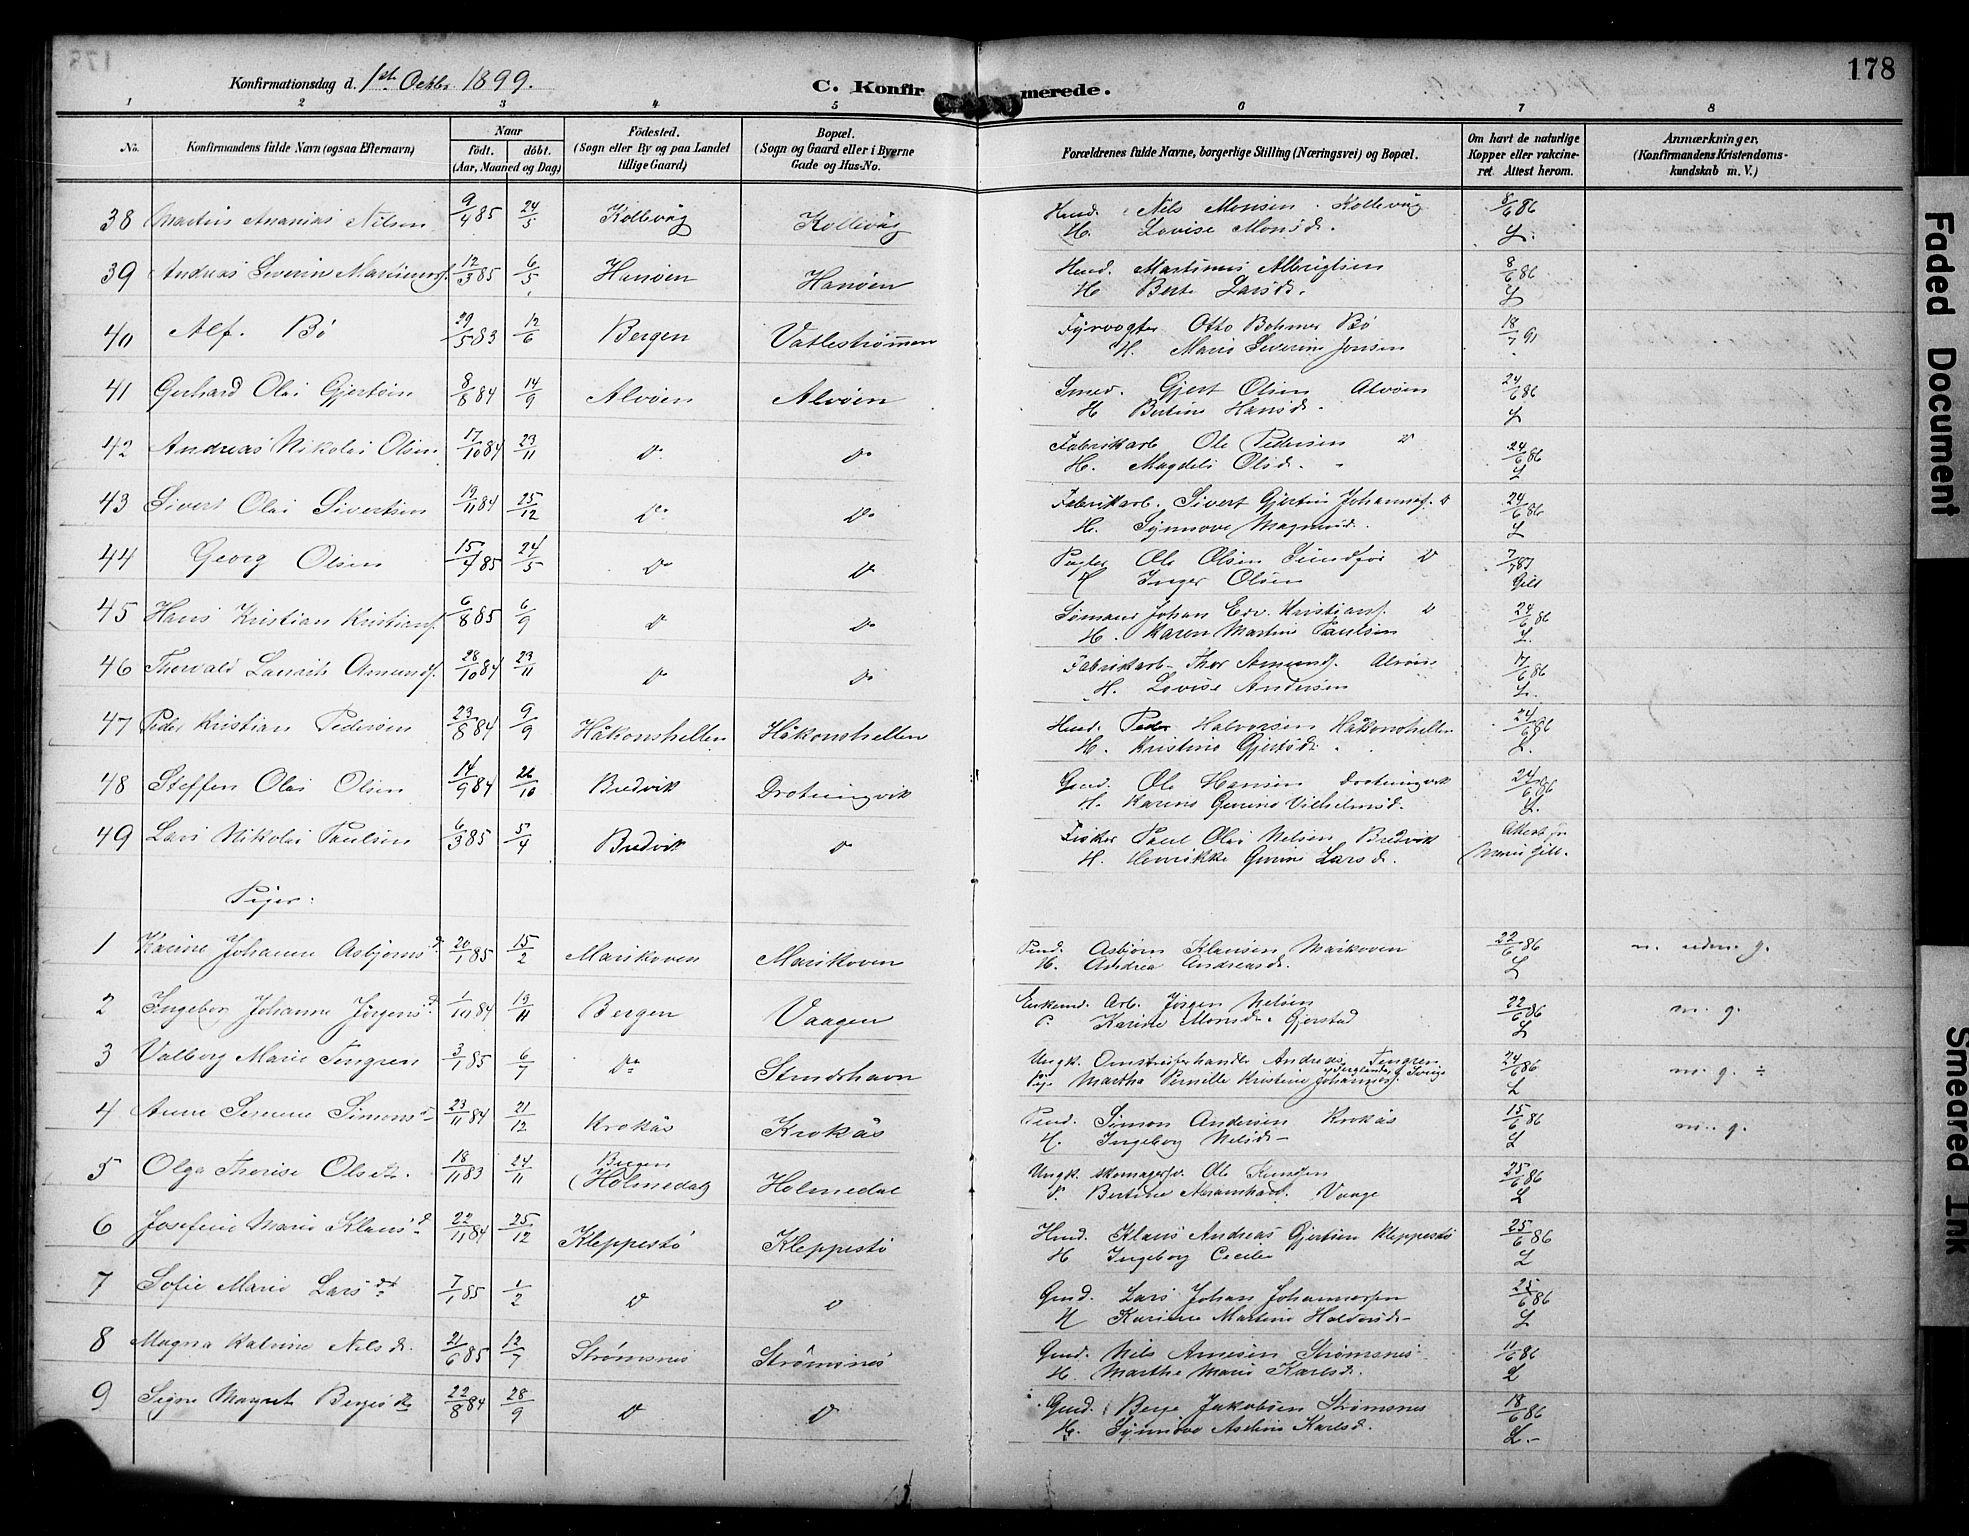 178
Konfirmationsdag d. 1ste Octbr. 1899.
C. Konfirmerede.
1 2 3 4 5 6 7 8
No.
Konfirmandens fulde Navn (ogsaa Efternavn)
Naar
født. døbt.
(Aar, Maaned og Dag)
Fødested.
(Sogn eller By og paa Landet
tillige Gaard)
Bopæl.
(Sogn og Gaard eller i Byerne
Gade og Hus-No.
Forældrenes fulde Navne, borgerlige Stilling (Næringsvei) og Bopæl.
Om havt de naturlige
Kopper eller vakcine-
ret. Attest herom.
Anmærkninger,
(Konfirmandens Kristendoms-
kundskab m. V.)
38 Martin Ananias Nilsen 9/4 85 24/5 Kollevåg Kollevåg Hmd. Nils Monsen Kollevåg 8/6 86
H. Lovise Monsd. L.
39 Andreas Severin Martinuss. 12/3 85 6/5 Hanøen Hanøen Hmd. Martinus Albrigtsen 8/6 86
H. Berte Larsd. L
40 Alf. Bö 29/5 83 12/6 Bergen Vatlestrømmen Fyrvogter Otto Bohmer Bö 18/7 91
H. Marie Severine Jensen
41 Gerhard Olai Gjertsen 8/8 84 14/9 Alvøen Alvøen Smed. Gjert Olsen Alvøen 24/6 86
H Bertine Hansd. L
42 Andreas Nikolai Olsen 17/10 84 23/11 Do Do Fabrikarb Ole Pedersen D 24/6 86
H. Magdeli Olsd. L
43 Sivert Olai Sivertsen 19/11 84 25/12 Do Do Fabrikarb. Sivert Gjertin Johanness. D 24/6 86
H. Synnøve Magnusd. L
44 Georg Olsen 15/4 85 24/5 Do Do Ole Olsen Sundför D
H Inger Olsen
45 Hans Kristian Kristians. 6/8 85 6/9 Do Do Sømand Johan Edv. Kristians. D 24/6 86
H. Karen Martine Paulsen L.
46 Thorvald Laurits Amunds. 28/10 84 23/11 Do Do Fabrikarb. Thor Amunds. Alvøen 17/6 86
H. Lovise Andersen L.
47 Peder Kristian Pedersen 23/8 84 9/9 Håkonshellen Håkonshellen Hmd. Peder Halvorsen Håkonshellen 24/6 86
H. Kristine Gjertsd. L.
48 Steffen Olai Olsen 14/9 84 26/10 Bredvik Drotningvik Gmd. Ole Hansen Drotningvik 24/6 86
H. Karen Gurine Vilhelmsd. L.
49 Lars Nikolai Paulsen 6/3 85 5/4 Bredvik Do Fisker Paul Olai Nilsen Bredvik Attest fr
H. Henrikke Gurine Larsd.
Piger:
1 Karine Johanne Asbjørnsd. 20/1 85 15/2 Marikoven Marikoven Pmd. Asbjørn Klausen Marikoven 22/6 86 m. udm. g.
H. Andrea Andreasd. L
2 Ingebor Johanne Jörgensd. 1/10 84 19/11 Bergen Vaagen Enkemd. Arb. Jörgen Nilsen 22/6 86 m. g.
P. Karine Monsd. Gjerstad L
3 Valborg Marie Tengren 3/1 85 6/7 Do Strudshavn Ungk. Omstreiferhandler Andreas Tengren 24/6 86 m. g. ÷
Pige Martha Pernille Kristine Johanness. L
4 Anne Serene Simonsd. 23/11 84 21/12 Krokås Krokås Pmd. Simon Andersen Krokås 15/6 86 m. g.
H. Ingeborg Nilsd. L
5 Olga Therise Olsd. 18/11 83 24/11 Bergen (Holmedal) Holmedal Ungk. Skomagersv. Ole Knudsen 25/6 86
P. Bertine Abrahamsd. Vaage L
6 Josefine Marie Klausd. 22/11 84 25/12 Kleppestø Kleppestø Hmd. Klaus Andreas Gjertsen Kleppestø 25/6 86
H Ingeborg Cecilie L
7 Sofie Marie Larsd. 7/1 85 1/2 D D Gmd. Lars Johan Johannessen 25/6 86
H Karine Martine Haldorsd. L
8 Magna Katrine Nilsd. 21/6 85 12/7 Strømsnes Strømsnes Gmd. Nils Arnesen Strømsnes 11/6 86
H. Marthe Marie Karlsd. L
9 Signe Magret Berjesd. 22/8 84 28/9 D D Gmd. Berje Jakobsen Strømsnes 18/6 86
H. Synnøve Aseline Karlsd. L.
Faded Document
Smeared Ink